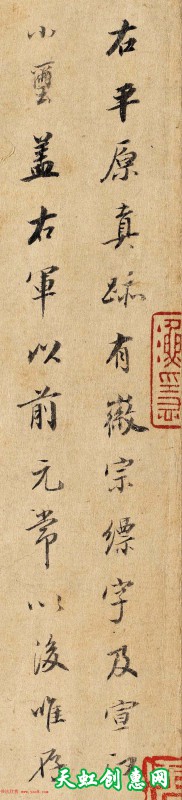 右平原真跡有徽宗縹字及宣和
小璽蓋右軍以前元常以後唯存
天虹创意网